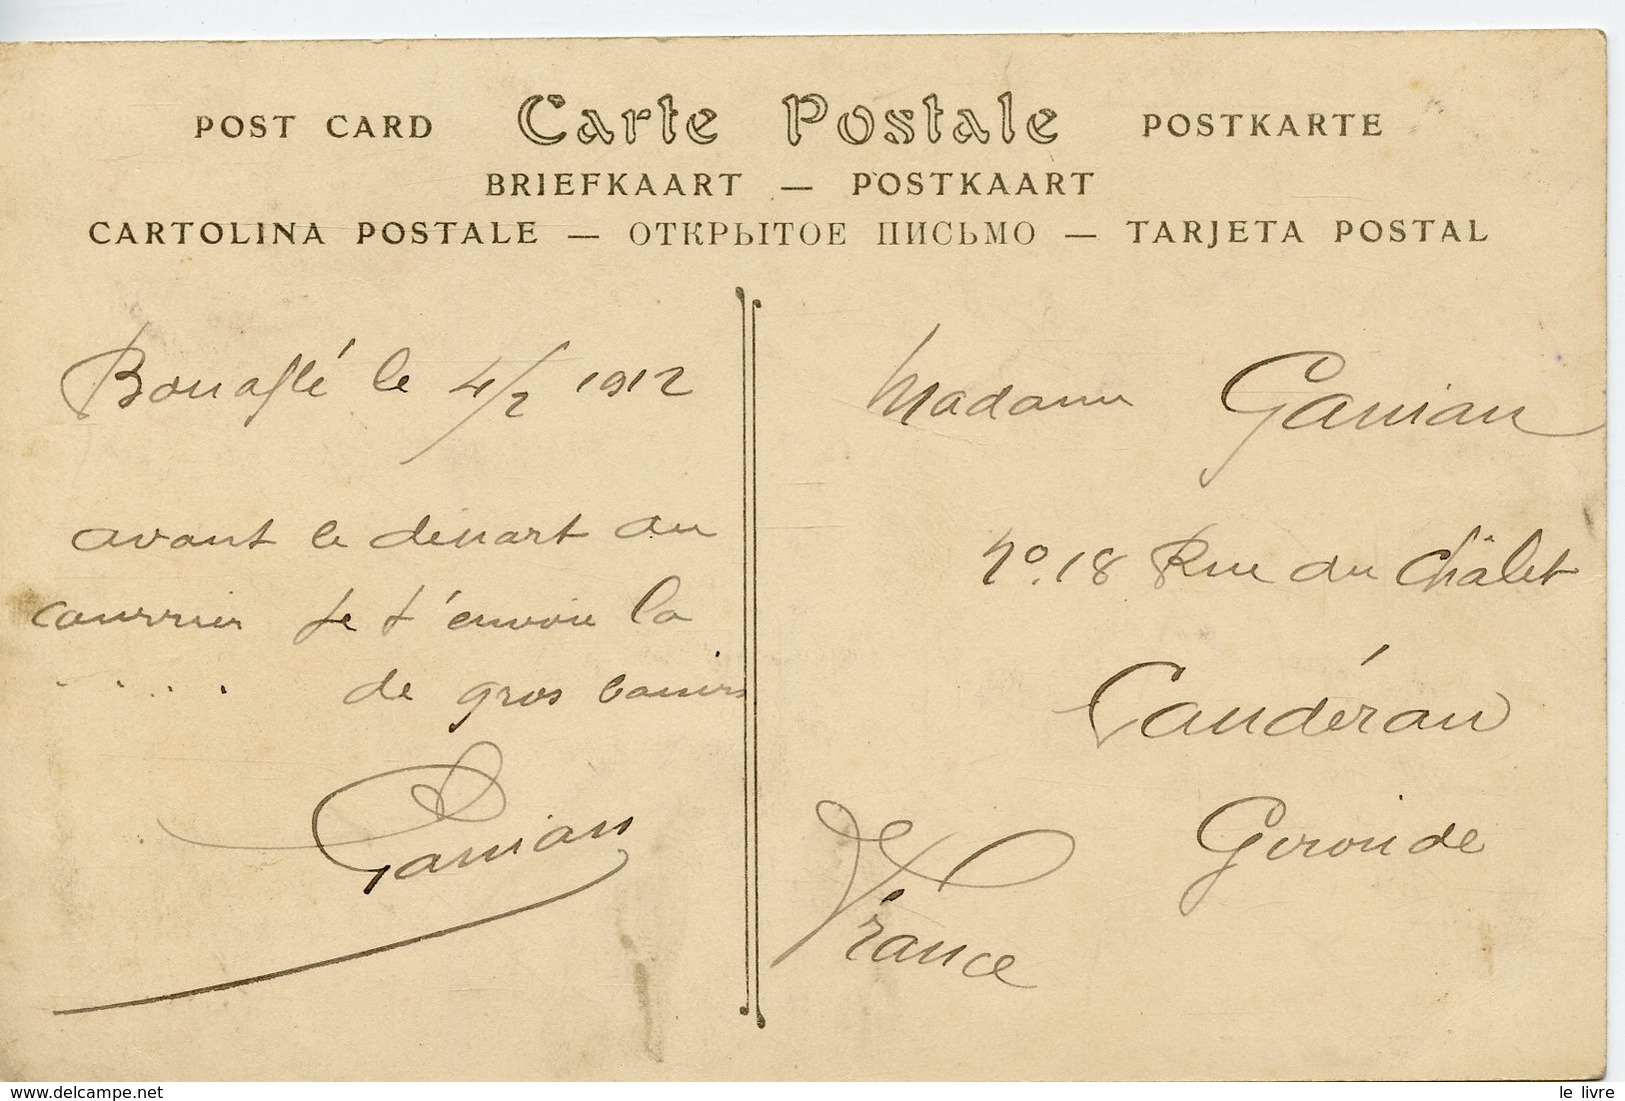 POST CARD Carte Postale POSTKARTE
BRIEFKAART — POSTKAART
CARTOLINA POSTALE — ОТКРЫТОЕ ПИСЬМО — TARJETA POSTAL
Bouaflé le 4/2 1912
avant le départ du
courrier je t'envoie la
. . . . de gros baisers
Ganian
Madame Ganian
No. 18 Rue du Châlet
Caudéran
Gironde
France
delcampe.net
le livre